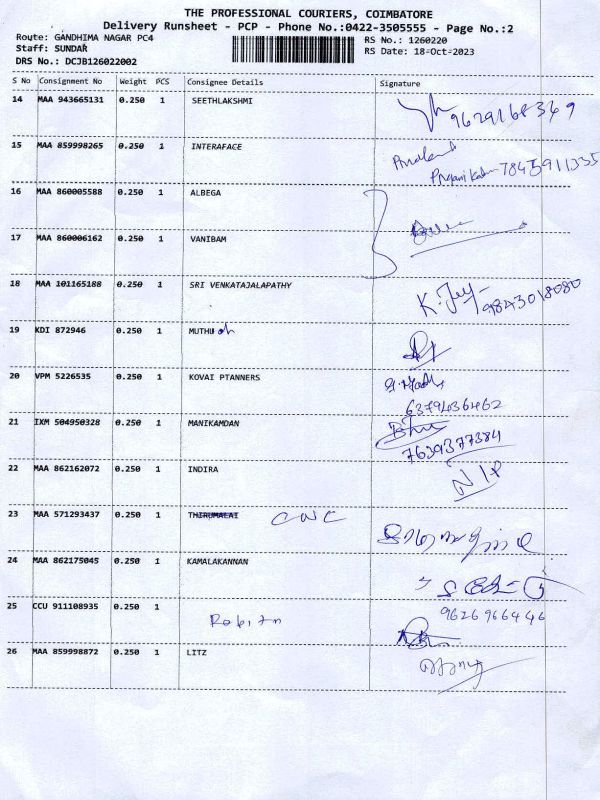 THE PROFESSIONAL COURIERS, COIMBATORE
Delivery Runsheet - PCP - Phone No.:0422-3505555 - Page No.:2
Route: GANDHIMA NAGAR PC4 RS No.: 1260220
Staff: SUNDAR RS Date: 18-Oct-2023
DRS No.: DCJB126022002
S No Consignment No Weight PCS Consignee Details Signature
14 MAA 943665131 0.250 1 SEETHLAKSHMI 9629168349
15 MAA 859998265 0.250 1 INTERAFACE
7845911335
16 MAA 860005588 0.250 1 ALBEGA
17 MAA 860006162 0.250 1 VANIBAM
18 MAA 101165188 0.250 1 SRI VENKATAJALAPATHY K. Jey 9843018080
19 KDI 872946 0.250 1 MUTHU
20 VPM 5226535 0.250 1 KOVAI PTANNERS
6379436462
21 IXM 504950328 0.250 1 MANIKAMDAN
7639377384
22 MAA 862162072 0.250 1 INDIRA N/P
23 MAA 571293437 0.250 1 THIRUMALAI CNC
24 MAA 862175045 0.250 1 KAMALAKANNAN
25 CCU 911108935 0.250 1 9626966446
26 MAA 859998872 0.250 1 LITZ